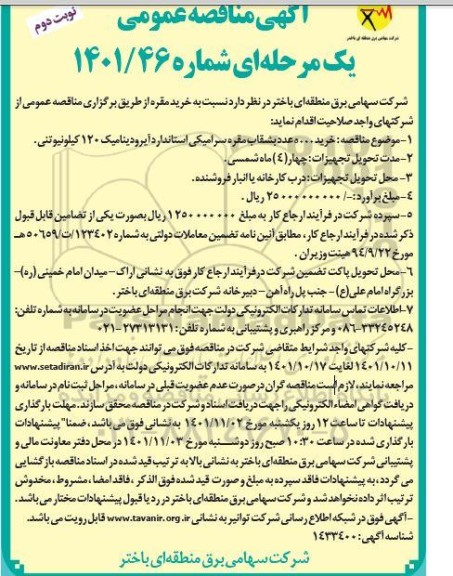 آگهی مناقصه عمومی
نوبت دوم
شرکت سهامی برق منطقه ای باختر
یک مرحله‌ای شماره ۱۴۰۱/۴۶
شرکت سهامی برق منطقه‌ای باختر در نظر دارد نسبت به خرید مقره از طریق برگزاری مناقصه عمومی از
شرکتهای واجد صلاحیت اقدام نماید:
۱-موضوع مناقصه: خرید ۵۰۰۰ عدد بشقاب مقره سرامیکی استاندارد آیرودینامیک ۱۲۰ کیلونیوتنی.
۲-مدت تحویل تجهیزات: چهار (۴) ماه شمسی.
۳- محل تحویل تجهیزات: درب کارخانه یا انبار فروشنده.
۴-مبلغ برآورد: -/۲۵۰۰۰۰۰۰۰۰۰ ریال.
۵-سپرده شرکت در فرآیند ارجاع کار به مبلغ ۱۲۵۰۰۰۰۰۰۰ ریال بصورت یکی از تضامین قابل قبول
ذکر شده در فرآیند ارجاع کار، مطابق آئین نامه تضمین معاملات دولتی به شماره ۱۲۳۴۰۲/ت/۵۰۶۵۹هـ
مورخ ۹۴/۹/۲۲ هیئت وزیران.
۶-محل تحویل پاکت تضمین شرکت در فرآیند ارجاع کار فوق به نشانی اراک – میدان امام خمینی (ره)–
بزرگراه امام علی (ع)- جنب پل راه آهن – دبیرخانه شرکت برق منطقه‌ای باختر.
۷-اطلاعات تماس سامانه تدارکات الکترونیکی دولت جهت انجام مراحل عضویت در سامانه به شماره تلفن:
۰۸۶-۳۳۲۴۵۲۴۸ و مرکز راهبری و پشتیبانی به شماره تلفن: ۲۷۳۱۳۱۳۱-۰۲۱
-کلیه شرکتهای واجد شرایط متقاضی شرکت در مناقصه فوق می توانند جهت اخذ اسناد مناقصه از تاریخ
۱۴۰۱/۱۰/۱۱ لغایت ۱۴۰۱/۱۰/۱۷ به سامانه تدارکات الکترونیکی دولت به آدرس www.setadiran.ir
مراجعه نمایند، لازم است مناقصه گران در صورت عدم عضویت قبلی در سامانه، مراحل ثبت نام در سامانه و
دریافت گواهی امضاء الکترونیکی را جهت دریافت اسناد و شرکت در مناقصه محقق سازند. مهلت بارگذاری
پیشنهادات تا ساعت ۱۲ روز یکشنبه مورخ ۱۴۰۱/۱۱/۰۲ به نشانی فوق می باشد، ضمنا" پیشنهادات
بارگذاری شده در ساعت ۱۰:۳۰ صبح روز دوشنبه مورخ ۱۴۰۱/۱۱/۰۳ در محل دفتر معاونت مالی و
پشتیبانی شرکت سهامی برق منطقه‌ای باختر به نشانی بالا به ترتیب قید شده در اسناد مناقصه بازگشایی
می گردد، به پیشنهادات فاقد سپرده به مبلغ و صورت قید شده فوق الذکر، فاقد امضاء، مشروط، مخدوش
ترتیب اثر داده نخواهد شد و شرکت سهامی برق منطقه‌ای باختر در رد یا قبول پیشنهادات مختار می باشد.
-آگهی فوق در شبکه اطلاع رسانی شرکت توانیر به نشانی www.tavanir.org.ir قابل رویت می باشد.
شناسه آگهی: ۱۴۳۳۴۰۰
شرکت سهامی برق منطقه‌ای باختر